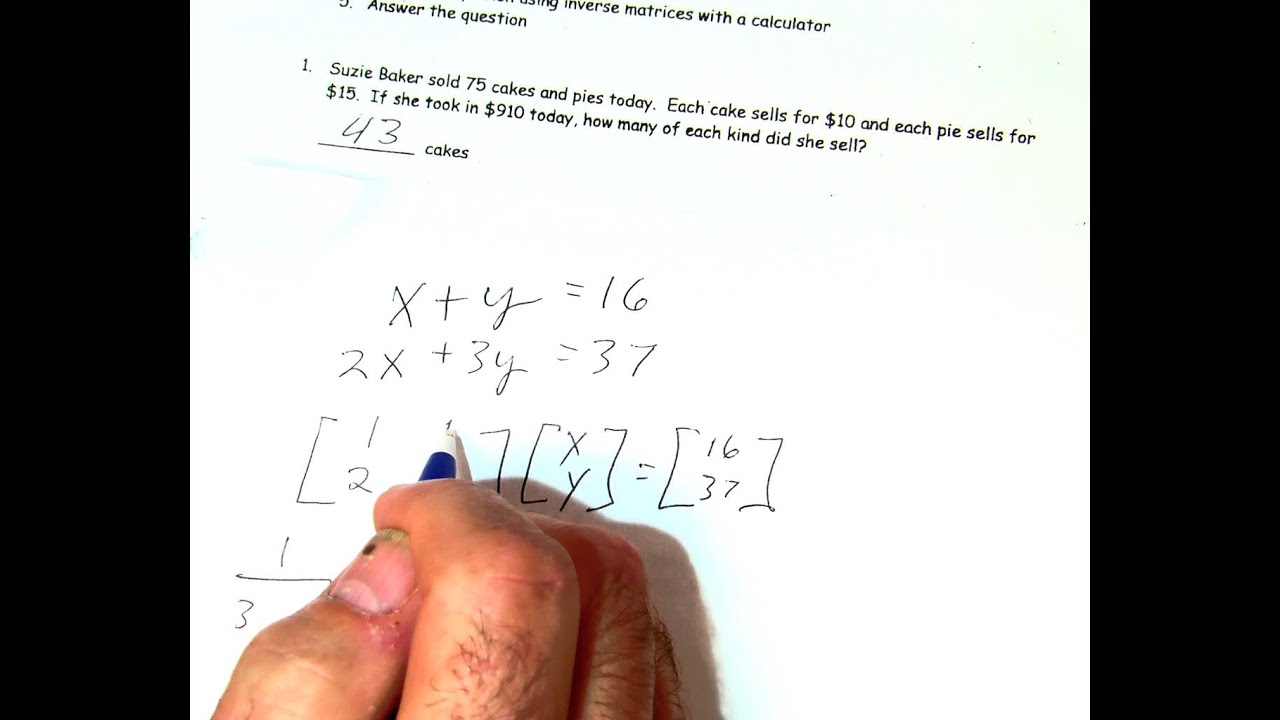 using inverse matrices with a calculator
5. Answer the question
1. Suzie Baker sold 75 cakes and pies today. Each cake sells for $10 and each pie sells for
$15. If she took in $910 today, how many of each kind did she sell?
43 cakes
x + y = 16
2x + 3y = 37
[ 1 1 ] [ x ] = [ 16 ]
[ 2 ] [ y ] [ 37 ]
1
3